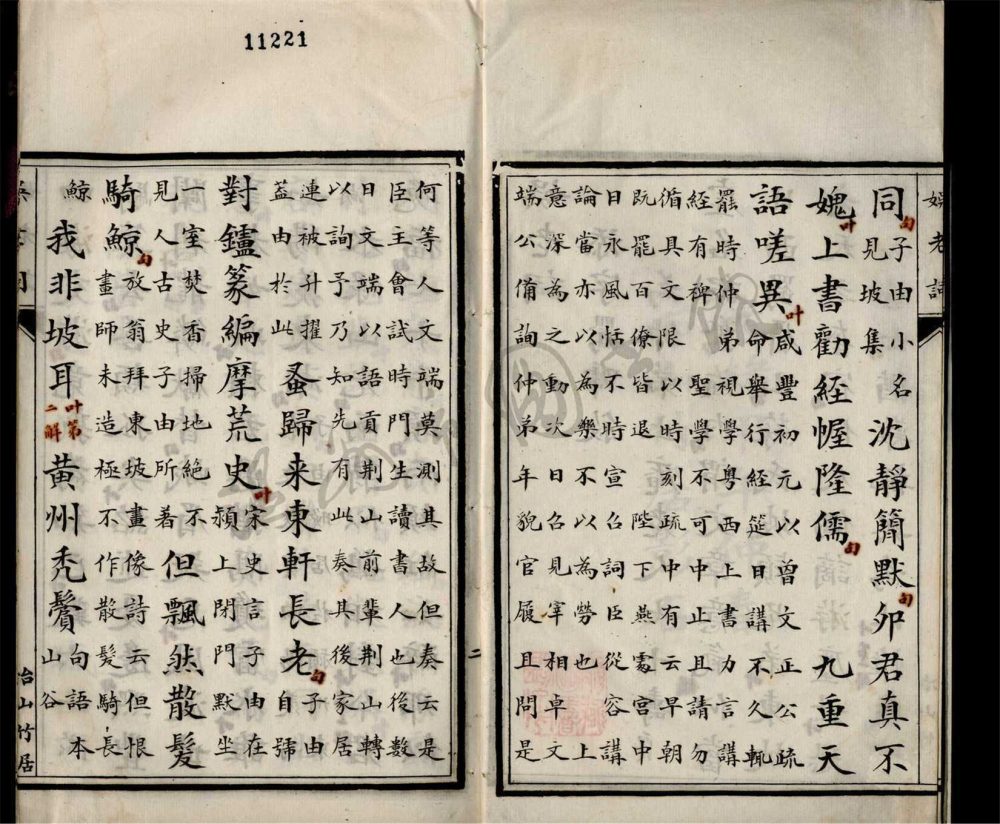 11221
娛老詞
同句子由小名
見坡集沈靜簡默句夘君真不
媿叶上書勸經幄隆儒句九重天
語嗟異叶咸豐初元以曾文正公疏
命舉行經筵日講不久輒
罷時仲弟視學粤西上書力言講
經有裨聖學不可中止且請勿
循具文限以時刻疏中有云早朝
既罷百僚皆退陛下燕處宮中
日永風恬不時宣召詞臣從容講
論當亦以為樂不以為勞也上
意深為之動次日召見宰相卓文
端公備詢仲弟年貌官履且問是
二
何等人文端莫測其故但奏云是
臣主會試時門生讀書人也後數
日文端以語貢荆山前輩荆山轉
以詢予乃知先有此奏其後家居
連被升擢
蓋由於此蚤歸来東軒長老句子由
自號
對鑪篆編摩荒史叶宋史言子由在
潁上閉門默坐
一室焚香掃地絕不
見人古史子由所著但飄然散髮
騎鯨句放翁拜東坡畫像詩云但恨
畫師未造極不作散髮騎長
鯨我非坡耳叶第二解黃州秃鬢句語本
山谷
冶山竹居